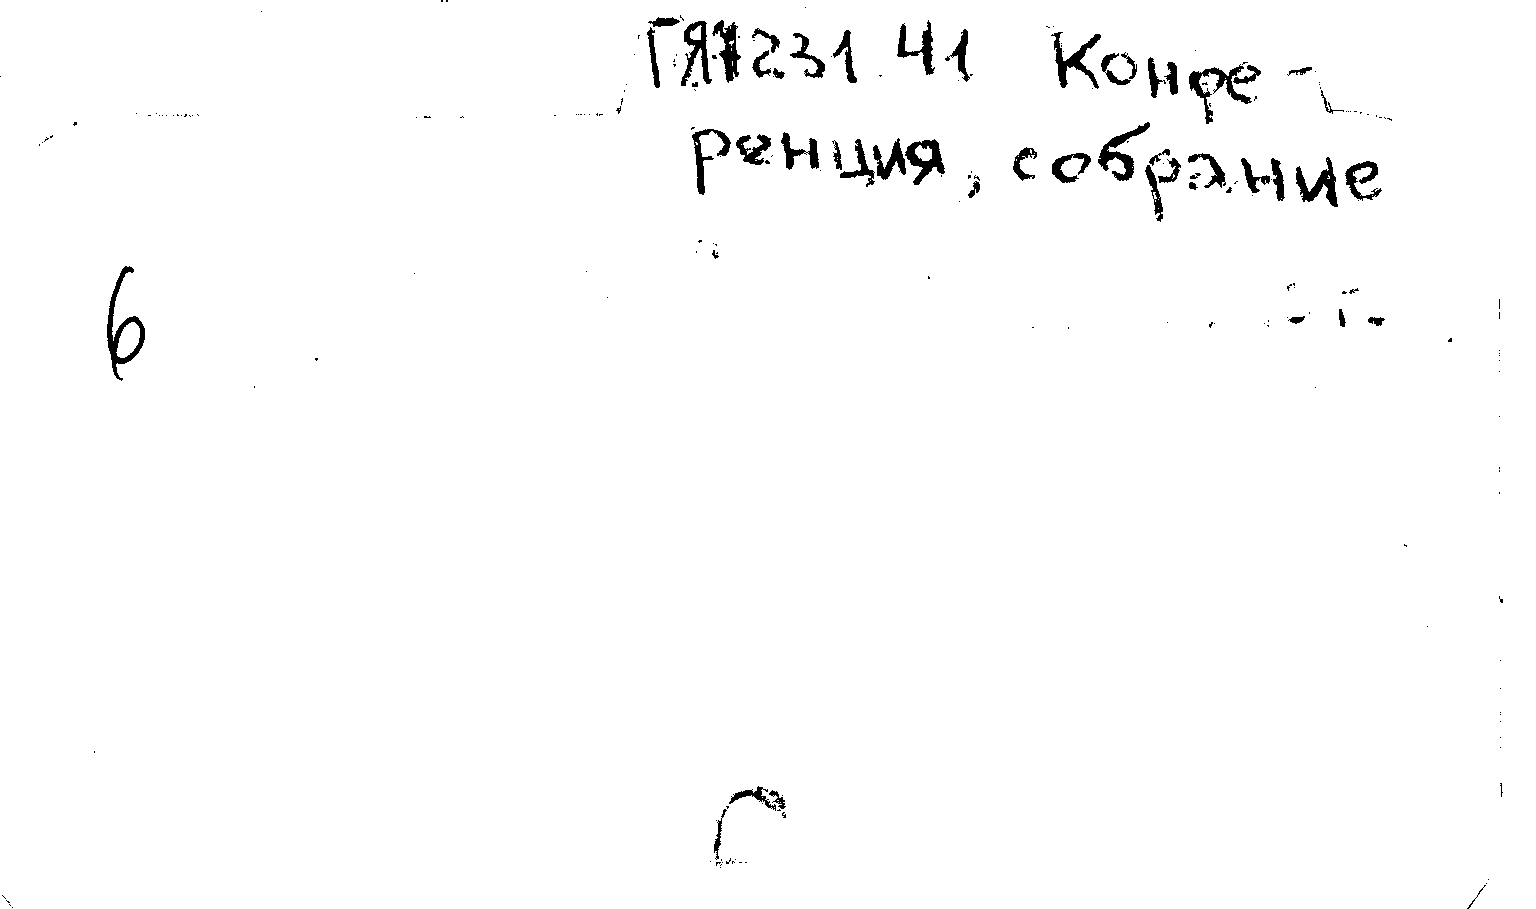 ГЯ4231.41 Конфе-
ренция, собрание
6